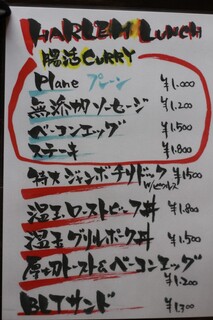 HARLEM LUNCH
腸活CURRY
Plane プレーン ¥1.000
無添加ソーセージ ¥1.200
ベーコンエッグ ¥1.500
ステーキ ¥1.800
特大ジャンボチリドック ¥1500
W/ピクルス
温玉ローストビーフ丼 ¥1.800
温玉グリルポーク丼 ¥1.500
厚切トースト&ベーコンエッグ
¥1.200
BLTサンド ¥1300